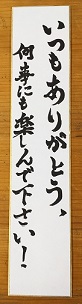 いつもありがとう、
何事にも楽しんで下さい!